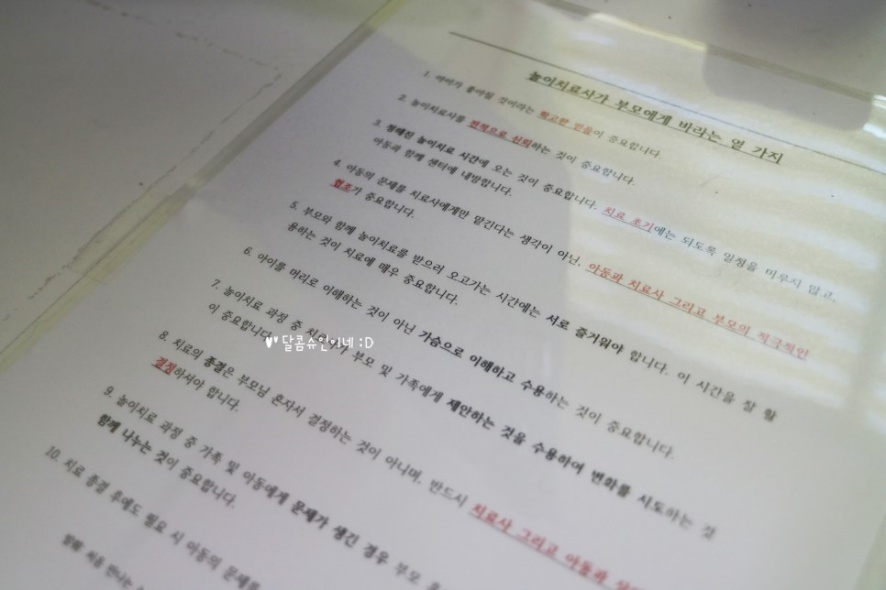 놀이치료사가 부모에게 바라는 열 가지
1. 아이가 좋아질 것이라는 확고한 믿음이 중요합니다.
2. 놀이치료사를 전적으로 신뢰하는 것이 중요합니다.
3. 정해진 놀이치료 시간에 오는 것이 중요합니다. 치료 초기에는 되도록 일정을 미루시지 않고,
아동과 함께 센터에 내방합니다.
4. 아동의 문제를 치료사에게만 맡긴다는 생각이 아닌, 아동과 치료사 그리고 부모의 적극적인
협조가 중요합니다.
5. 부모와 함께 놀이치료를 받으러 오고가는 시간에는 서로 즐거워야 합니다. 이 시간을 잘 활
용하는 것이 치료에 매우 중요합니다.
6. 아이를 머리로 이해하는 것이 아닌 가슴으로 이해하고 수용하는 것이 중요합니다.
7. 놀이치료 과정 중 부모 및 가족에게 제안하는 것을 수용하여 변화를 시도하는 것
이 중요합니다.
♥♥달콤슈인이네 :D
8. 치료의 종결은 부모님 혼자서 결정하는 것이 아니며, 반드시 치료사 그리고 아동과
결정하셔야 합니다.
9. 놀이치료 과정 중 가족 및 아동에게 문제가 생긴 경우 부모
함께 나누는 것이 중요합니다.
10. 치료 종결 후에도 필요 시 아동의 문제를
처음 만나는